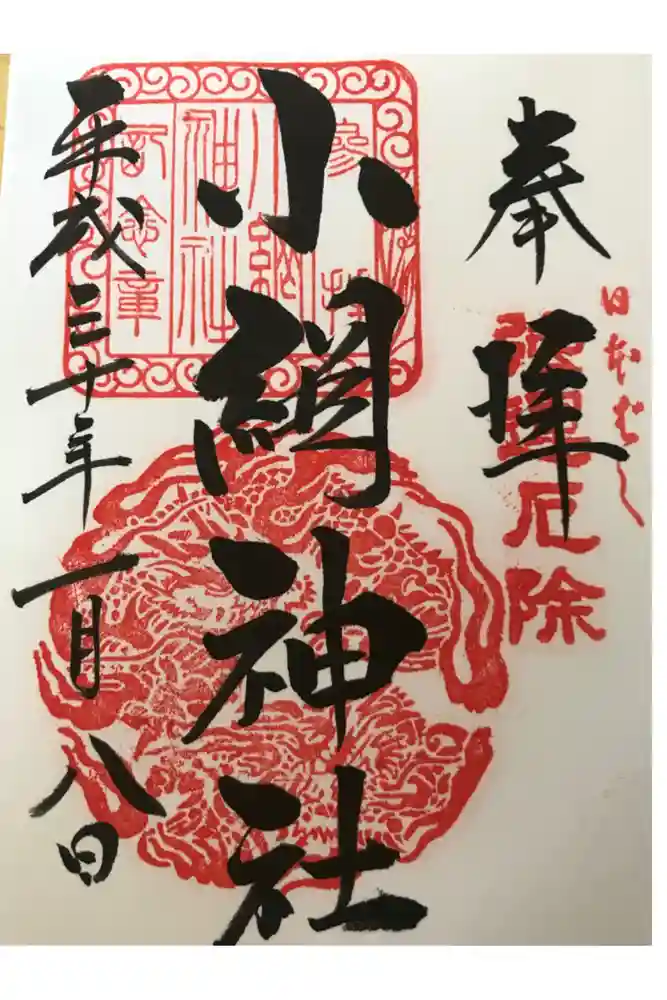 奉拝
日本ばし
強運厄除
参拝
小網
神社
記念章
小網神社
平成三十年一月八日